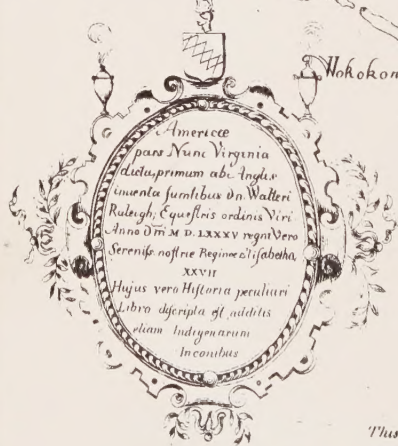 Wokokon
Americæ
pars Nunc Virginia
dicta, primum abi Anglis
inuenta sumtibus Dn. Walteri
Raleigh, Equestris ordinis Viri
Anno Dm̄ M D. LXXXV regni Vero
Sereniss nostrie Reginœ Elisabethæ,
XXVII
Hujus vero Historia peculiari
Libro discripta est, additis
etiam Indigenarum
Inconibus
This